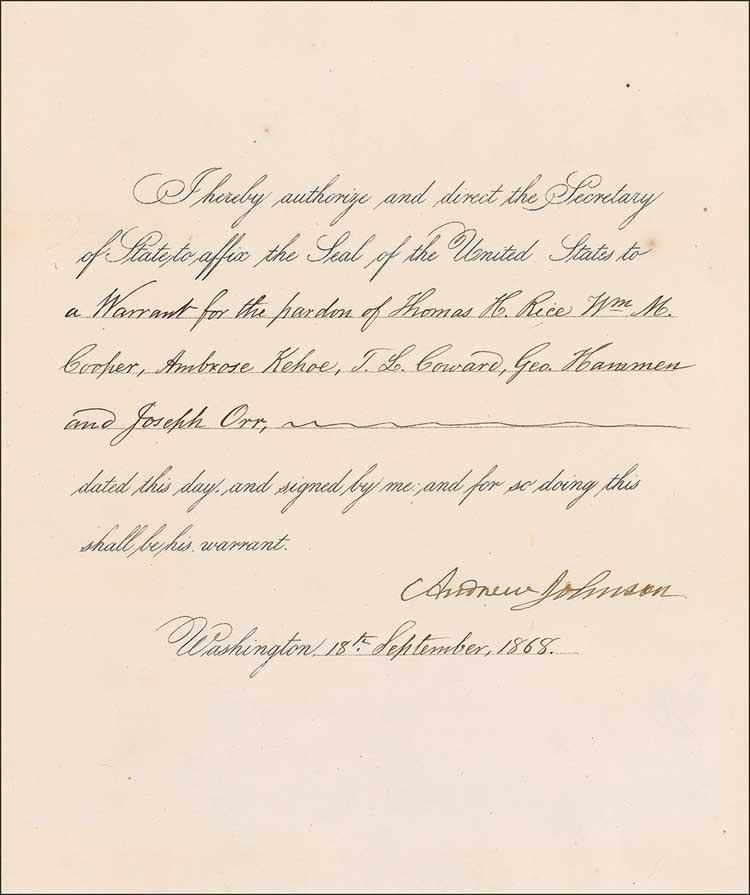 I hereby authorize and direct the Secretary
of State, to affix the Seal of the United States to
a Warrant for the pardon of Thomas H. Rice Wm M.
Cooper, Ambrose Kehoe, T. L. Coward, Geo. Hammen
and Joseph Orr,
dated this day, and signed by me; and for so doing this
shall be his warrant.
Andrew Johnson
Washington, 18th September, 1868.